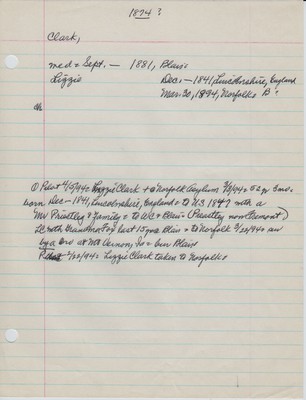 1874 ?
Clark,
med = Sept. — 1881, Blair =
Lizzie Dec. — 1841, Lincolnshire, England
Mar. 30, 1894, Norfolk = B =
ch
① Pilot 4/5/94 = Lizzie Clark + @ Norfolk Asylum 3/30/94 = 52 yr 3 mo =
born Dec — 1841, Lincolnshire, England = to U.S. 1847 with a
Mr Priestley & family = to WC = Blair = (Priestley now Fremont)
LC with Grandma Fox last 15 yrs Blair = to Norfolk 2/22/94 = sur
by a bro at Mt Vernon, Io = bur Blair
Pilot 2/22/94 = Lizzie Clark taken to Norfolk =